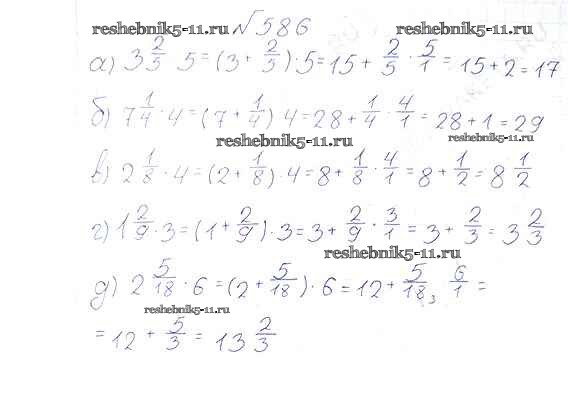 reshebnik5-11.ru №586 reshebnik5-11.ru
а) 3 2/5 5 = (3 + 2/5) · 5 = 15 + 2/5 · 5/1 = 15 + 2 = 17
б) 7 1/4 · 4 = (7 + 1/4) 4 = 28 + 1/4 · 4/1 = 28 + 1 = 29
reshebnik5-11.ru
в) 2 1/8 · 4 = (2 + 1/8) · 4 = 8 + 1/8 · 4/1 = 8 + 1/2 = 8 1/2
г) 1 2/9 · 3 = (1 + 2/9) · 3 = 3 + 2/9 · 3/1 = 3 + 2/3 = 3 2/3
reshebnik5-11.ru
д) 2 5/18 · 6 = (2 + 5/18) · 6 = 12 + 5/18 3 · 6/1 =
reshebnik5-11.ru
= 12 + 5/3 = 13 2/3